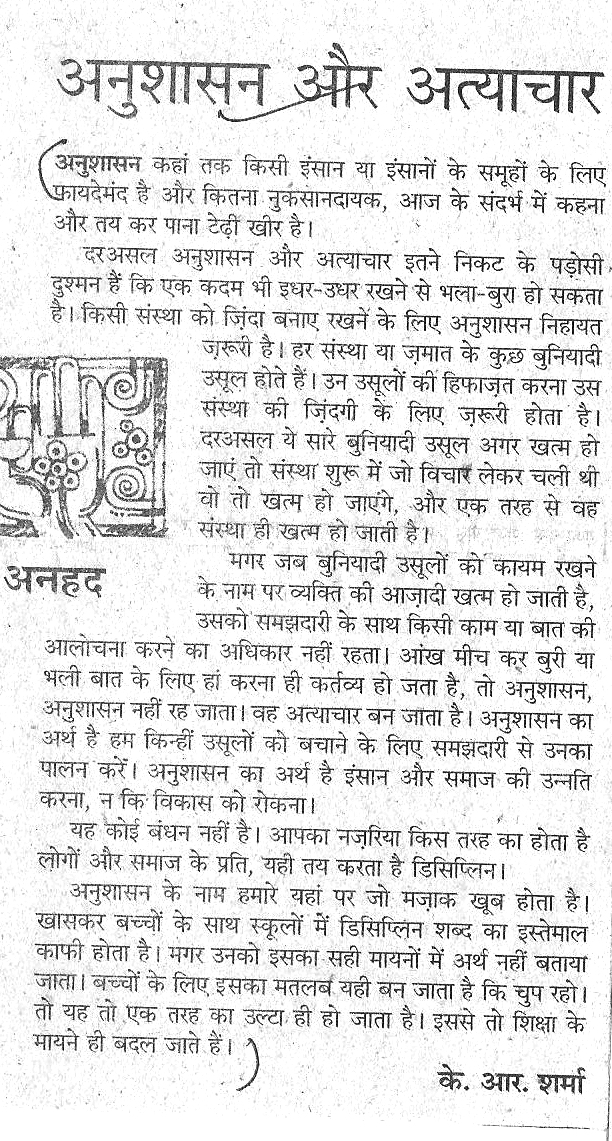 अनुशासन और अत्याचार
अनुशासन कहां तक किसी इंसान या इंसानों के समूहों के लिए
फ़ायदेमंद है और कितना नुकसानदायक, आज के संदर्भ में कहना
और तय कर पाना टेढ़ी खीर है।
दरअसल अनुशासन और अत्याचार इतने निकट के पड़ोसी
दुश्मन हैं कि एक कदम भी इधर-उधर रखने से भला-बुरा हो सकता
है। किसी संस्था को ज़िंदा बनाए रखने के लिए अनुशासन निहायत
ज़रूरी है। हर संस्था या ज़मात के कुछ बुनियादी
उसूल होते हैं। उन उसूलों की हिफाज़त करना उस
संस्था की ज़िंदगी के लिए ज़रूरी होता है।
दरअसल ये सारे बुनियादी उसूल अगर खत्म हो
जाएं तो संस्था शुरू में जो विचार लेकर चली थी
वो तो खत्म हो जाएंगे, और एक तरह से वह
संस्था ही खत्म हो जाती है।
अनहद
मगर जब बुनियादी उसूलों को कायम रखने
के नाम पर व्यक्ति की आज़ादी खत्म हो जाती है,
उसको समझदारी के साथ किसी काम या बात की
आलोचना करने का अधिकार नहीं रहता। आंख मीच कर बुरी या
भली बात के लिए हां करना ही कर्तव्य हो जता है, तो अनुशासन,
अनुशासन नहीं रह जाता। वह अत्याचार बन जाता है। अनुशासन का
अर्थ है हम किन्हीं उसूलों को बचाने के लिए समझदारी से उनका
पालन करें। अनुशासन का अर्थ है इंसान और समाज की उन्नति
करना, न कि विकास को रोकना।
यह कोई बंधन नहीं है। आपका नज़रिया किस तरह का होता है
लोगों और समाज के प्रति, यही तय करता है डिसिप्लिन।
अनुशासन के नाम हमारे यहां पर जो मज़ाक खूब होता है।
खासकर बच्चों के साथ स्कूलों में डिसिप्लिन शब्द का इस्तेमाल
काफी होता है। मगर उनको इसका सही मायनों में अर्थ नहीं बताया
जाता। बच्चों के लिए इसका मतलब यही बन जाता है कि चुप रहो।
तो यह तो एक तरह का उल्टा ही हो जाता है। इससे तो शिक्षा के
मायने ही बदल जाते हैं।
के. आर. शर्मा